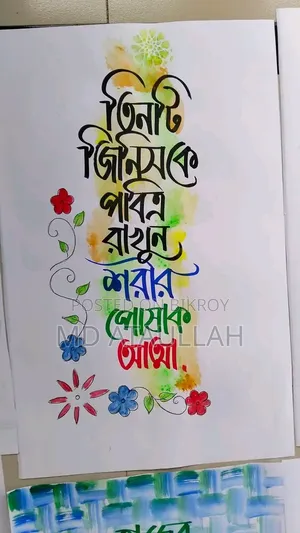 তিনটি
জিনিসকে
পবিত্র
রাখুন
শরীর
POSTED ON BIKROY
পোষাক
MD ATAULLAH
আত্মা.